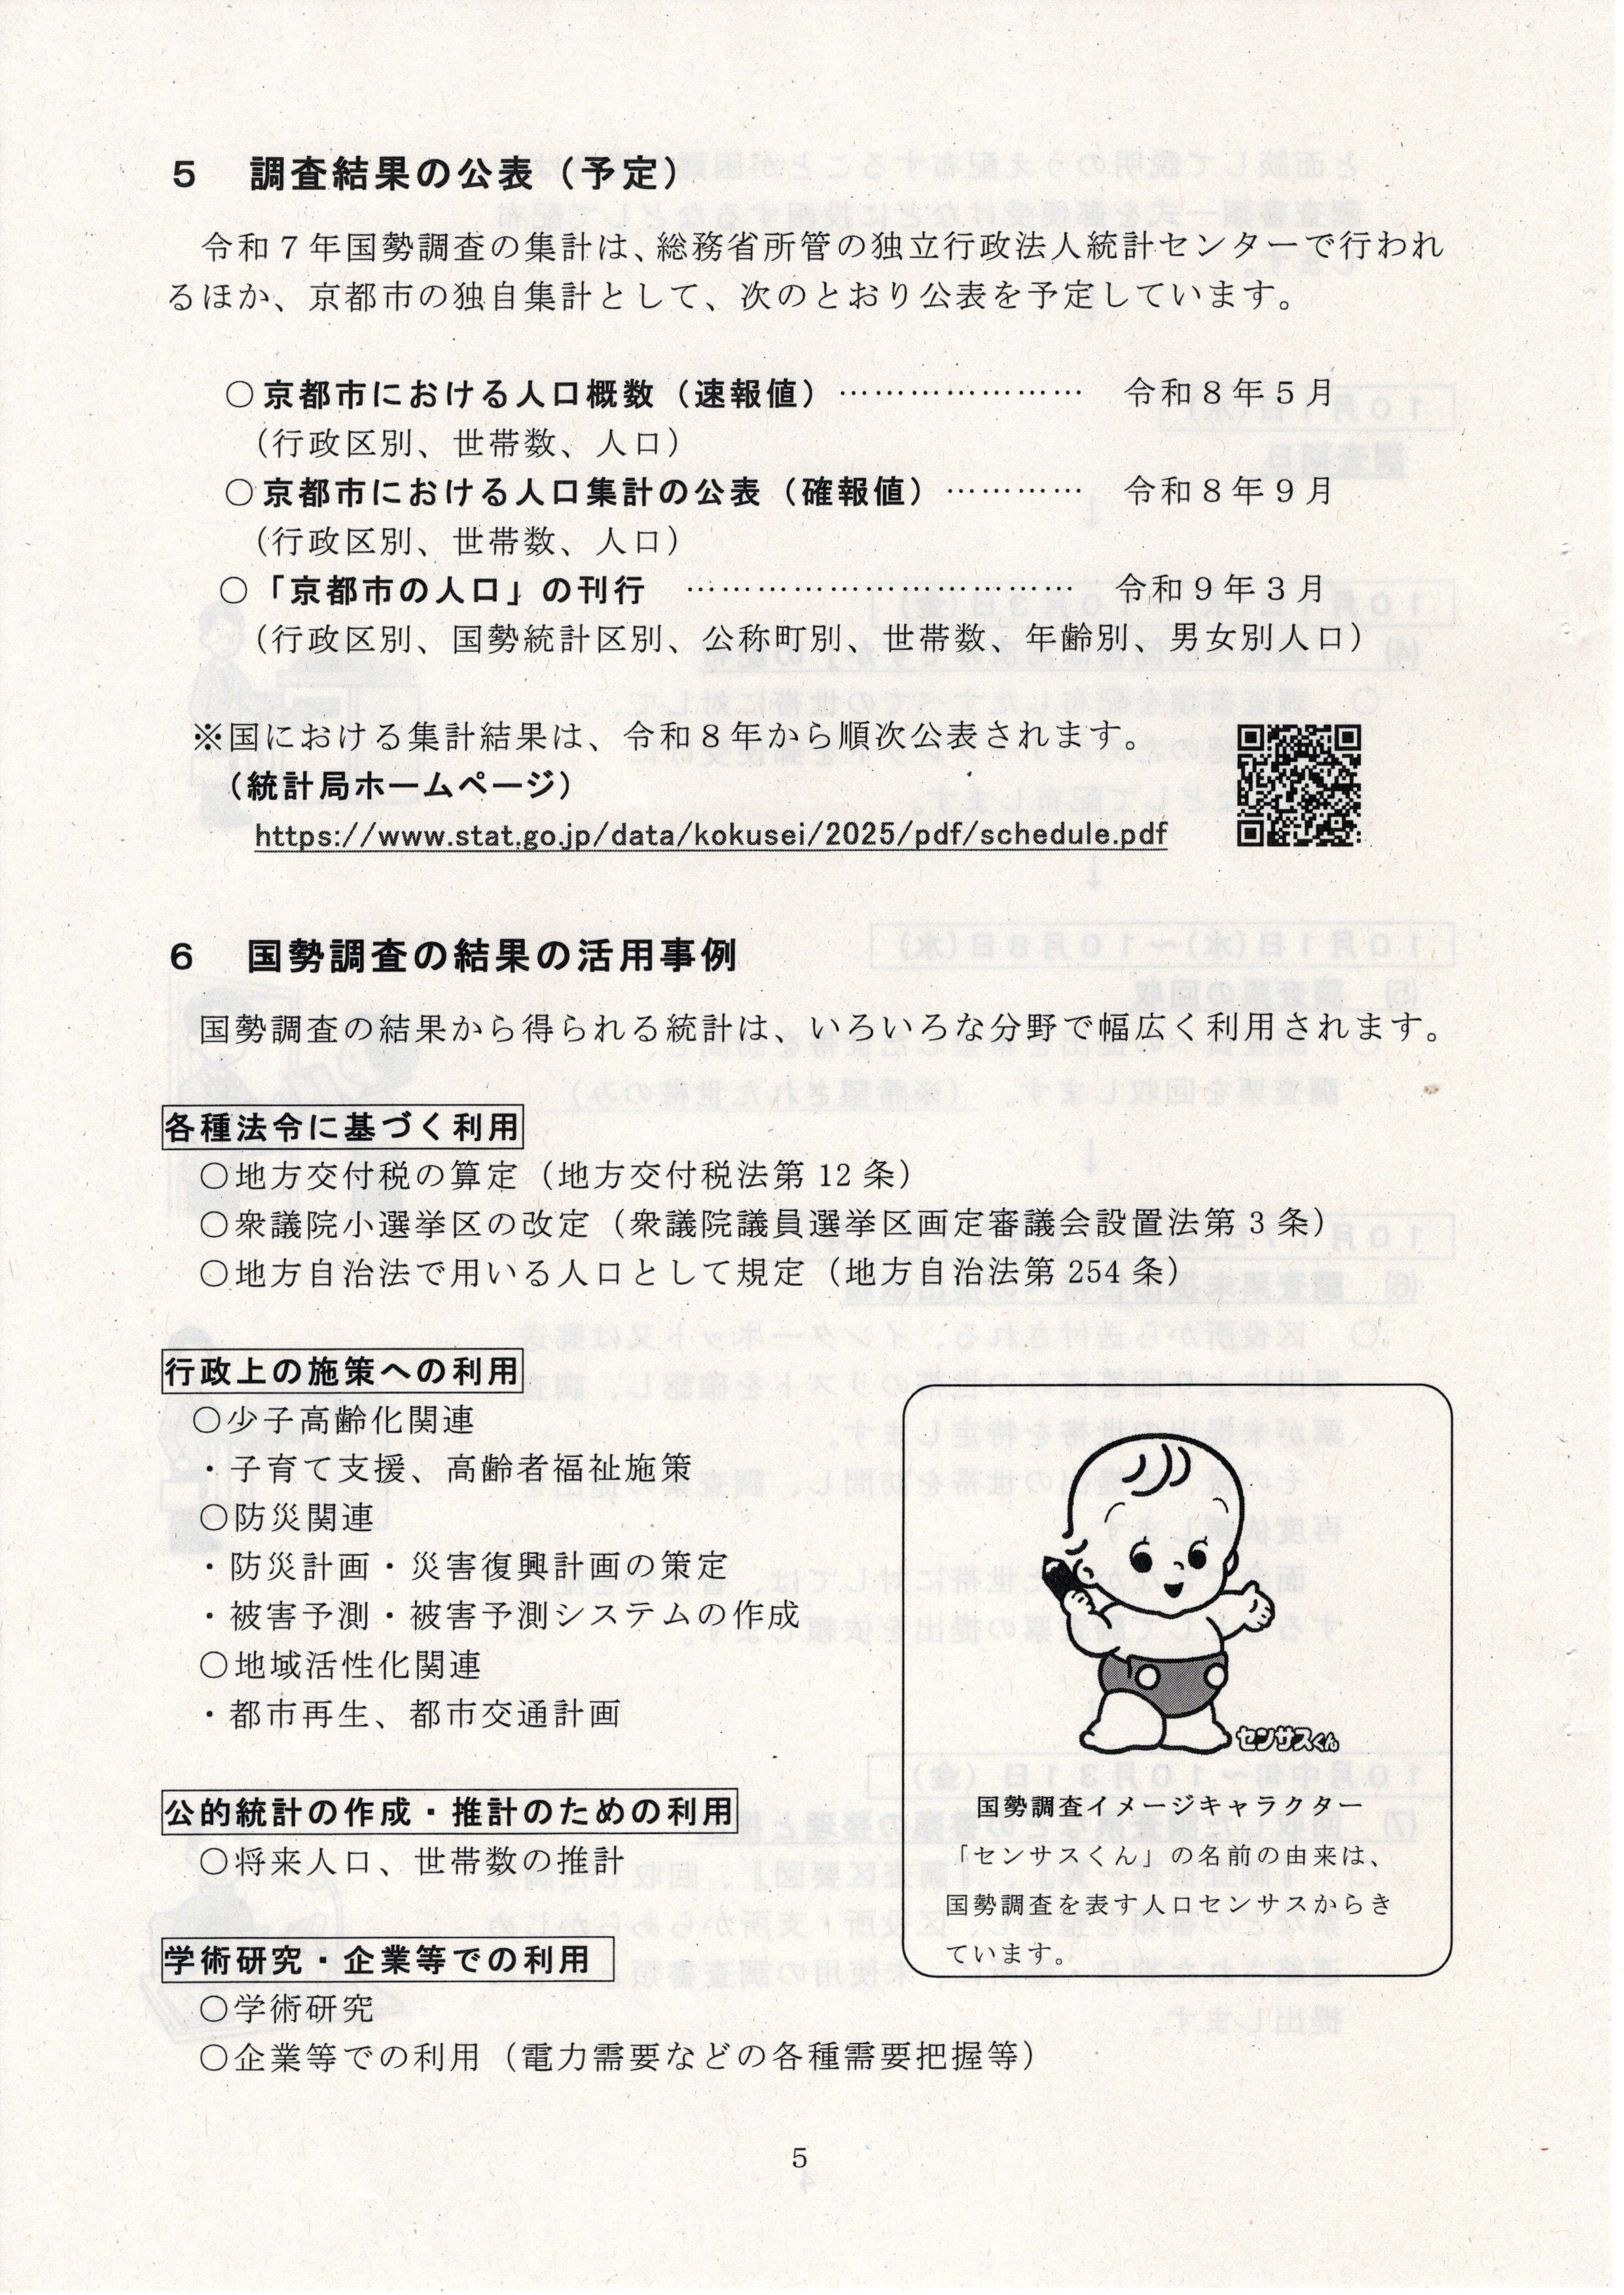 5 調査結果の公表（予定）
令和７年国勢調査の集計は、総務省所管の独立行政法人統計センターで行われ
るほか、京都市の独自集計として、次のとおり公表を予定しています。
○京都市における人口概数（速報値）………………… 令和８年５月
（行政区別、世帯数、人口）
○京都市における人口集計の公表（確報値）………… 令和８年９月
（行政区別、世帯数、人口）
○「京都市の人口」の刊行 …………………………… 令和９年３月
（行政区別、国勢統計区別、公称町別、世帯数、年齢別、男女別人口）
※国における集計結果は、令和８年から順次公表されます。
（統計局ホームページ）
https://www.stat.go.jp/data/kokusei/2025/pdf/schedule.pdf
6 国勢調査の結果の活用事例
国勢調査の結果から得られる統計は、いろいろな分野で幅広く利用されます。
各種法令に基づく利用
○地方交付税の算定（地方交付税法第 12 条）
○衆議院小選挙区の改定（衆議院議員選挙区画定審議会設置法第 3 条）
○地方自治法で用いる人口として規定（地方自治法第 254 条）
行政上の施策への利用
○少子高齢化関連
・子育て支援、高齢者福祉施策
○防災関連
・防災計画・災害復興計画の策定
・被害予測・被害予測システムの作成
○地域活性化関連
・都市再生、都市交通計画
センサスくん
国勢調査イメージキャラクター
「センサスくん」の名前の由来は、
国勢調査を表す人口センサスからき
ています。
公的統計の作成・推計のための利用
○将来人口、世帯数の推計
学術研究・企業等での利用
○学術研究
○企業等での利用（電力需要などの各種需要把握等）
5